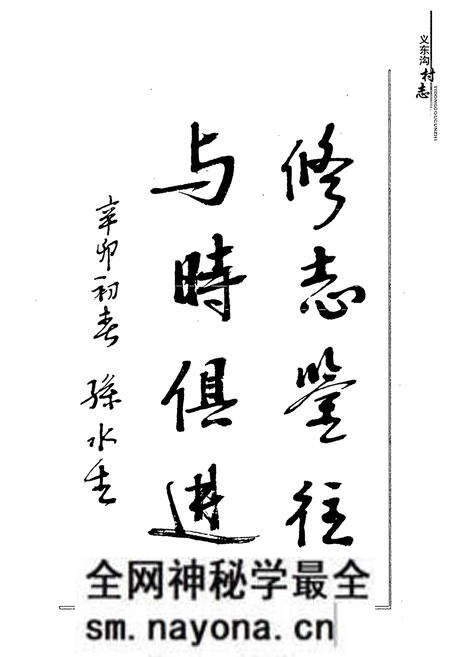 义东沟村志
YIDONGGOUCUNZHI
修志鉴往
与時俱進
辛卯初春 孫水生
全网神秘学最全
sm.nayona.cn